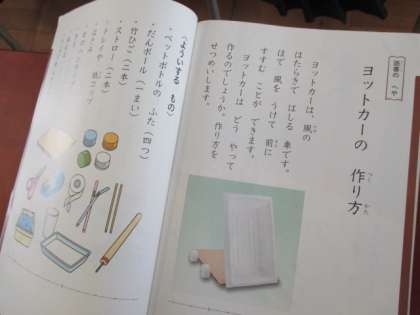 読書の へや
ヨットカーの 作り方
つく
かた
ヨットカーは、風の
はたらきで はしる 車です。
ほで 風を うけて 前に
すすむ ことが できます。
ヨットカーは どう やって
作るのでしょうか。作り方を
せつめいします。
〈よういする もの〉
・ペットボトルの ふた（四つ）
・だんボール（一まい）
・竹ひご（二本）
・ストロー（二本）
・トレイや 紙コップ
・はさみ